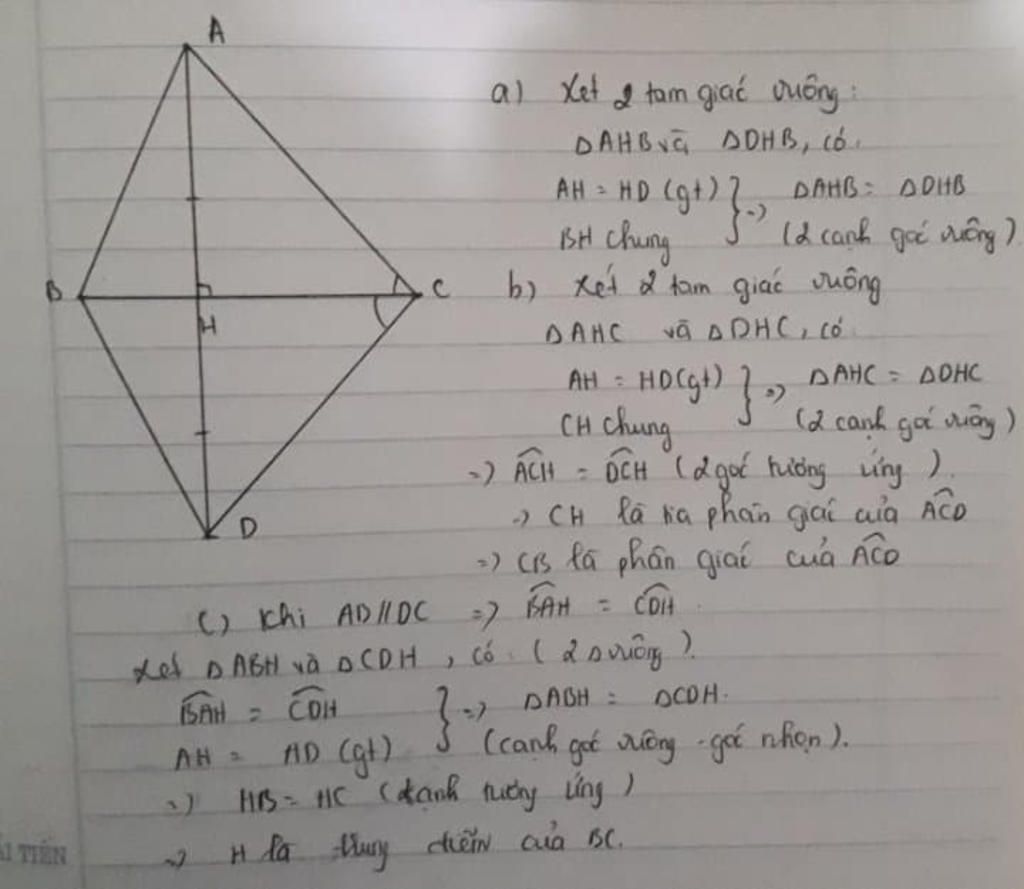 A
B
C
H
D
a) Xét 2 tam giác vuông:
ΔAHB và ΔDHB, có.
AH = HD (gt) } => ΔAHB = ΔDHB
BH chung (2 cạnh góc vuông)
b) Xét 2 tam giác vuông
ΔAHC và ΔDHC, có
AH = HD (gt) } => ΔAHC = ΔDHC
CH chung (2 cạnh góc vuông)
=> \widehat{ACH} = \widehat{DCH} (2 góc tương ứng).
=> CH là tia phân giác của \widehat{ACD}
=> CB là phân giác của \widehat{ACD}
c) Khi AD//DC => \widehat{BAH} = \widehat{CDH}.
Xét ΔABH và ΔCDH, có. (2 Δ vuông).
\widehat{BAH} = \widehat{CDH} } => ΔABH = ΔCDH.
AH = HD (gt) (cạnh góc vuông - góc nhọn).
=> HB = HC (2 cạnh tương ứng)
=> H là trung điểm của BC.
TIẾN